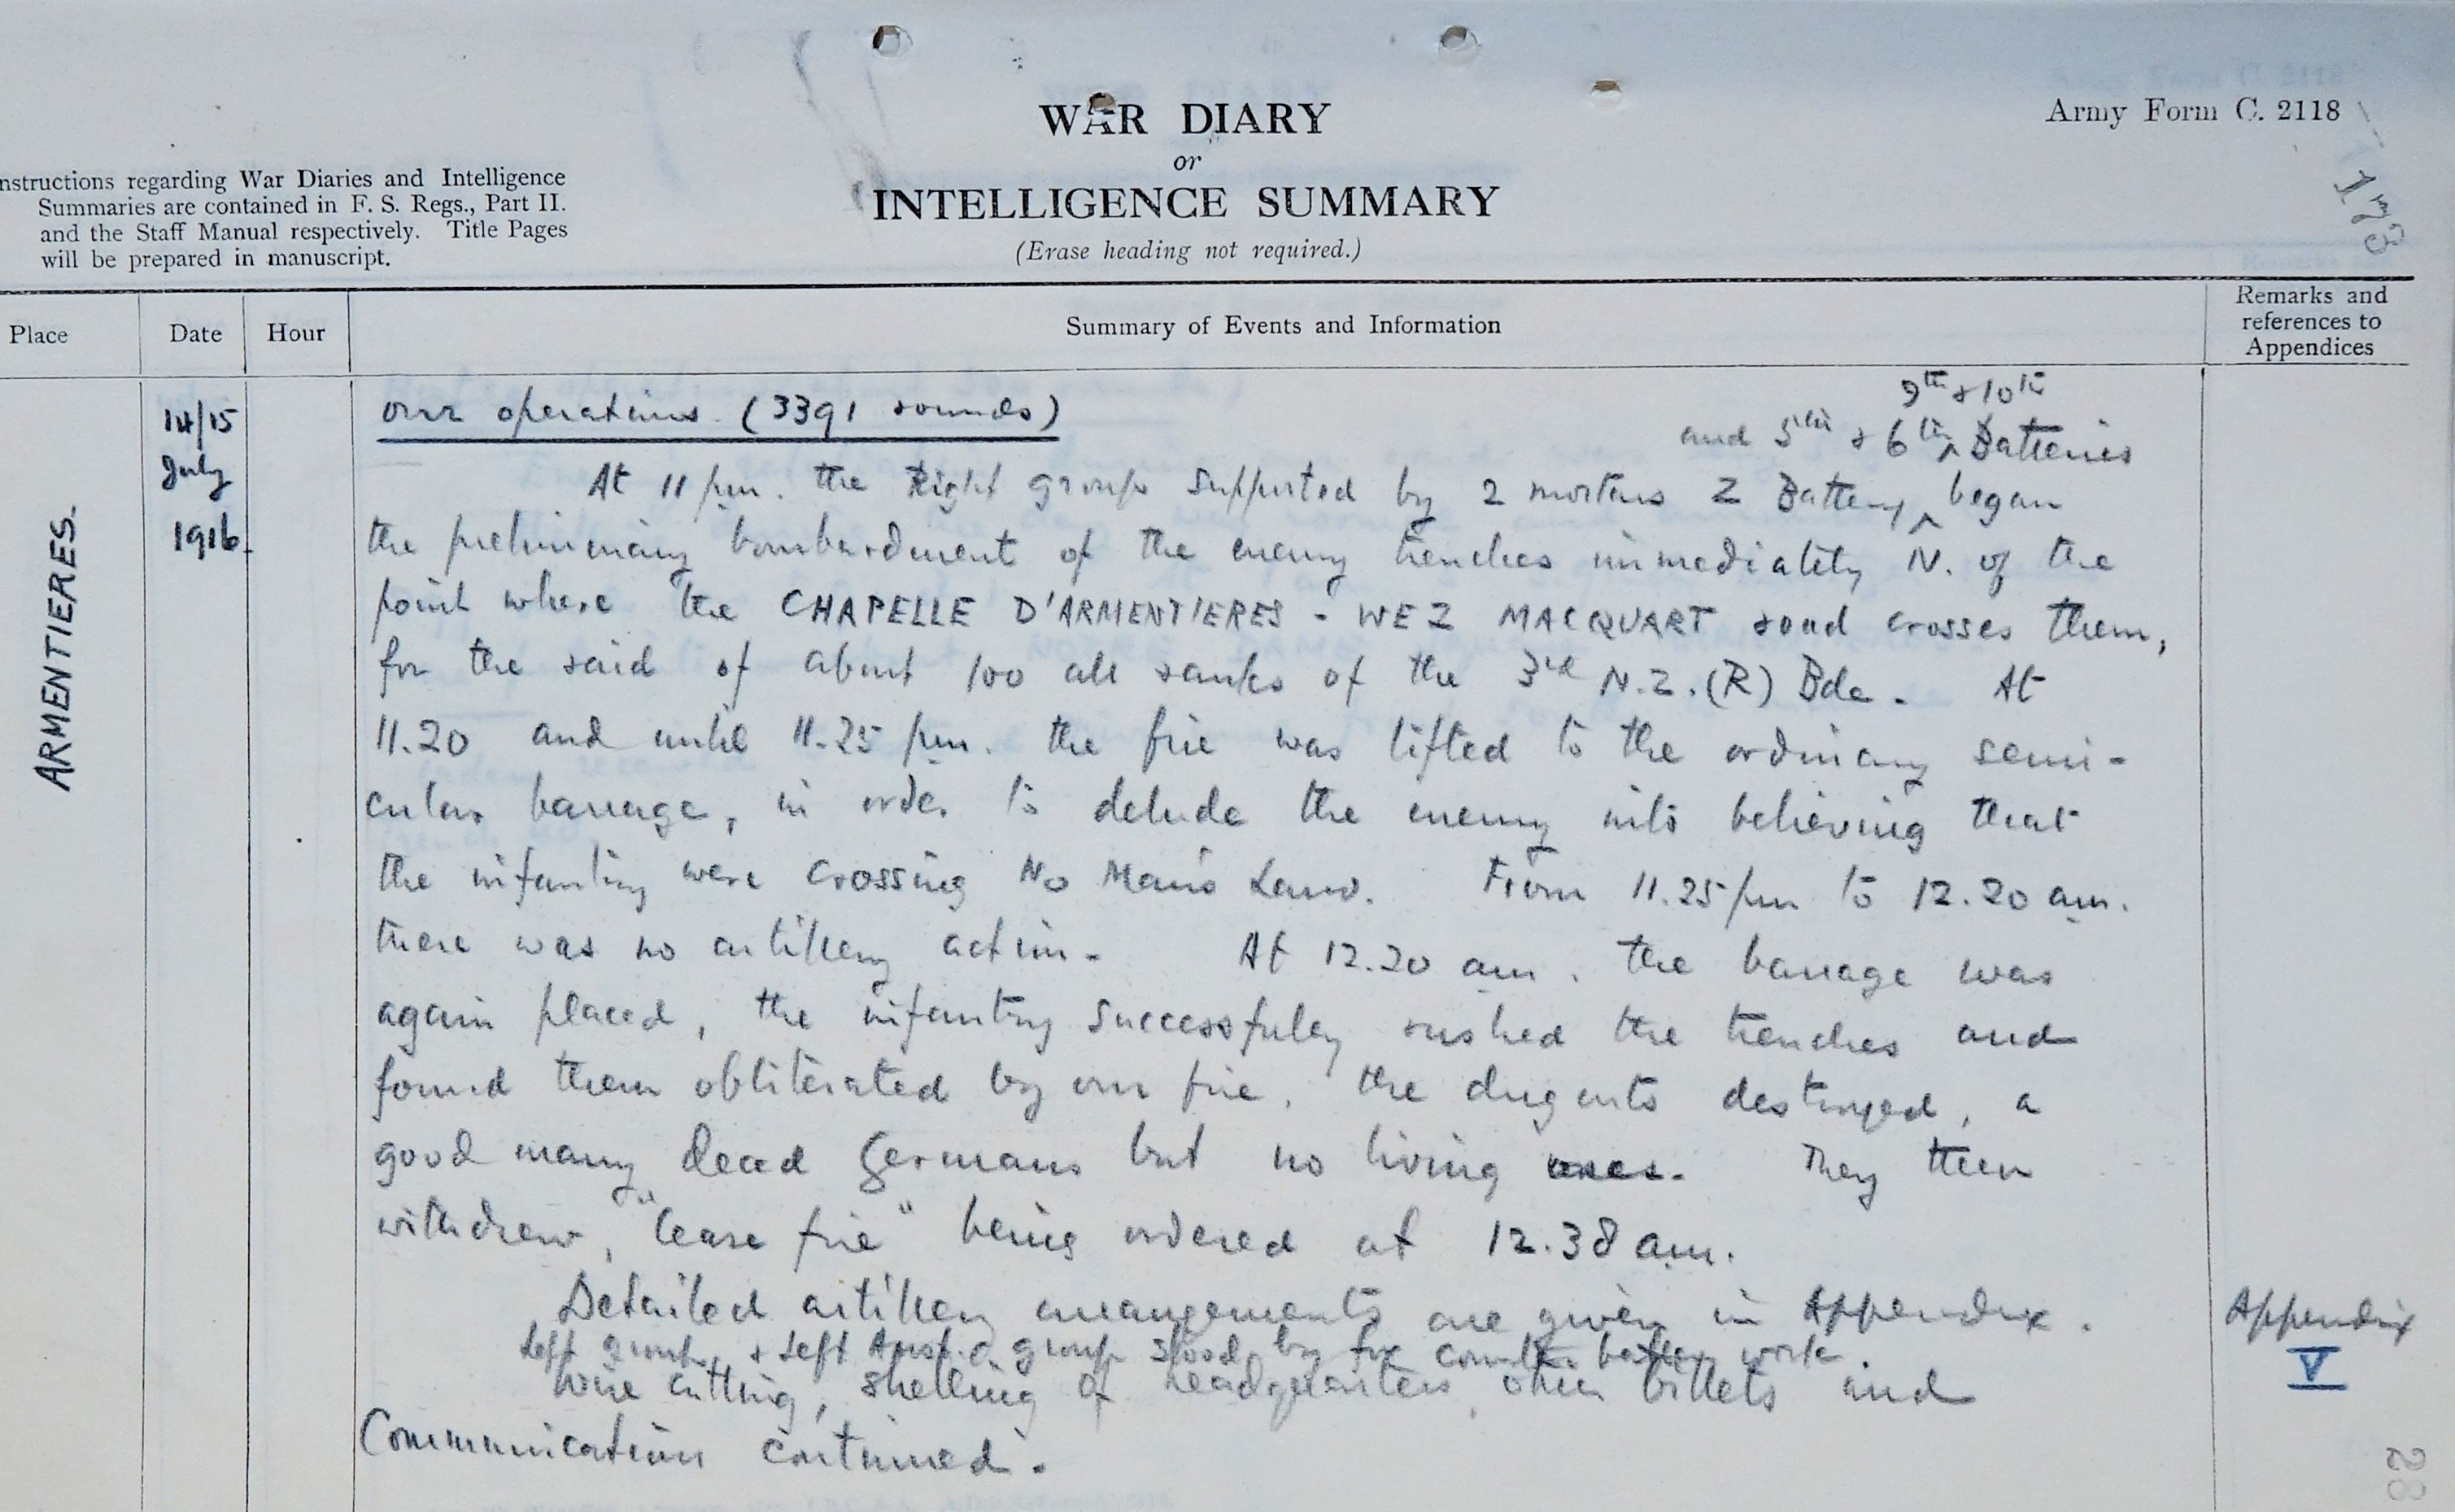 WAR DIARY
or
INTELLIGENCE SUMMARY
(Erase heading not required.)
Army Form C. 2118
173
nstructions regarding War Diaries and Intelligence
Summaries are contained in F. S. Regs., Part II.
and the Staff Manual respectively. Title Pages
will be prepared in manuscript.
Place
Date
Hour
Summary of Events and Information
Remarks and
references to
Appendices
ARMENTIERES.
14/15
July
1916.
our operations. (3391 rounds)
9th & 10th
and 5th & 6th ^ Batteries
At 11 pm. the Right group supported by 2 mortars Z Battery ^ began
the preliminary bombardment of the enemy trenches immediately N. of the
point where the CHAPELLE D'ARMENTIERES - WEZ MACQUART road crosses them,
for the raid of about 100 all ranks of the 3rd N.Z.(R) Bde. At
11.20 and until 11.25 pm. the fire was lifted to the ordinary semi-
cular barrage, in order to delude the enemy into believing that
the infantry were crossing No Man's Land. From 11.25 pm to 12.20 am.
there was no artillery action. At 12.20 am. the barrage was
again placed, the infantry successfully rushed the trenches and
found them obliterated by our fire, the dug outs destroyed, a
good many dead Germans but no living ones. They then
withdrew, "Cease fire" being ordered at 12.38 am.
Detailed artillery arrangements are given in Appendix.
Left group & Left Aust. group stood by for counter battery work.
Wire cutting, shelling of headquarters, other billets and
Communication continued.
Appendix
V
28